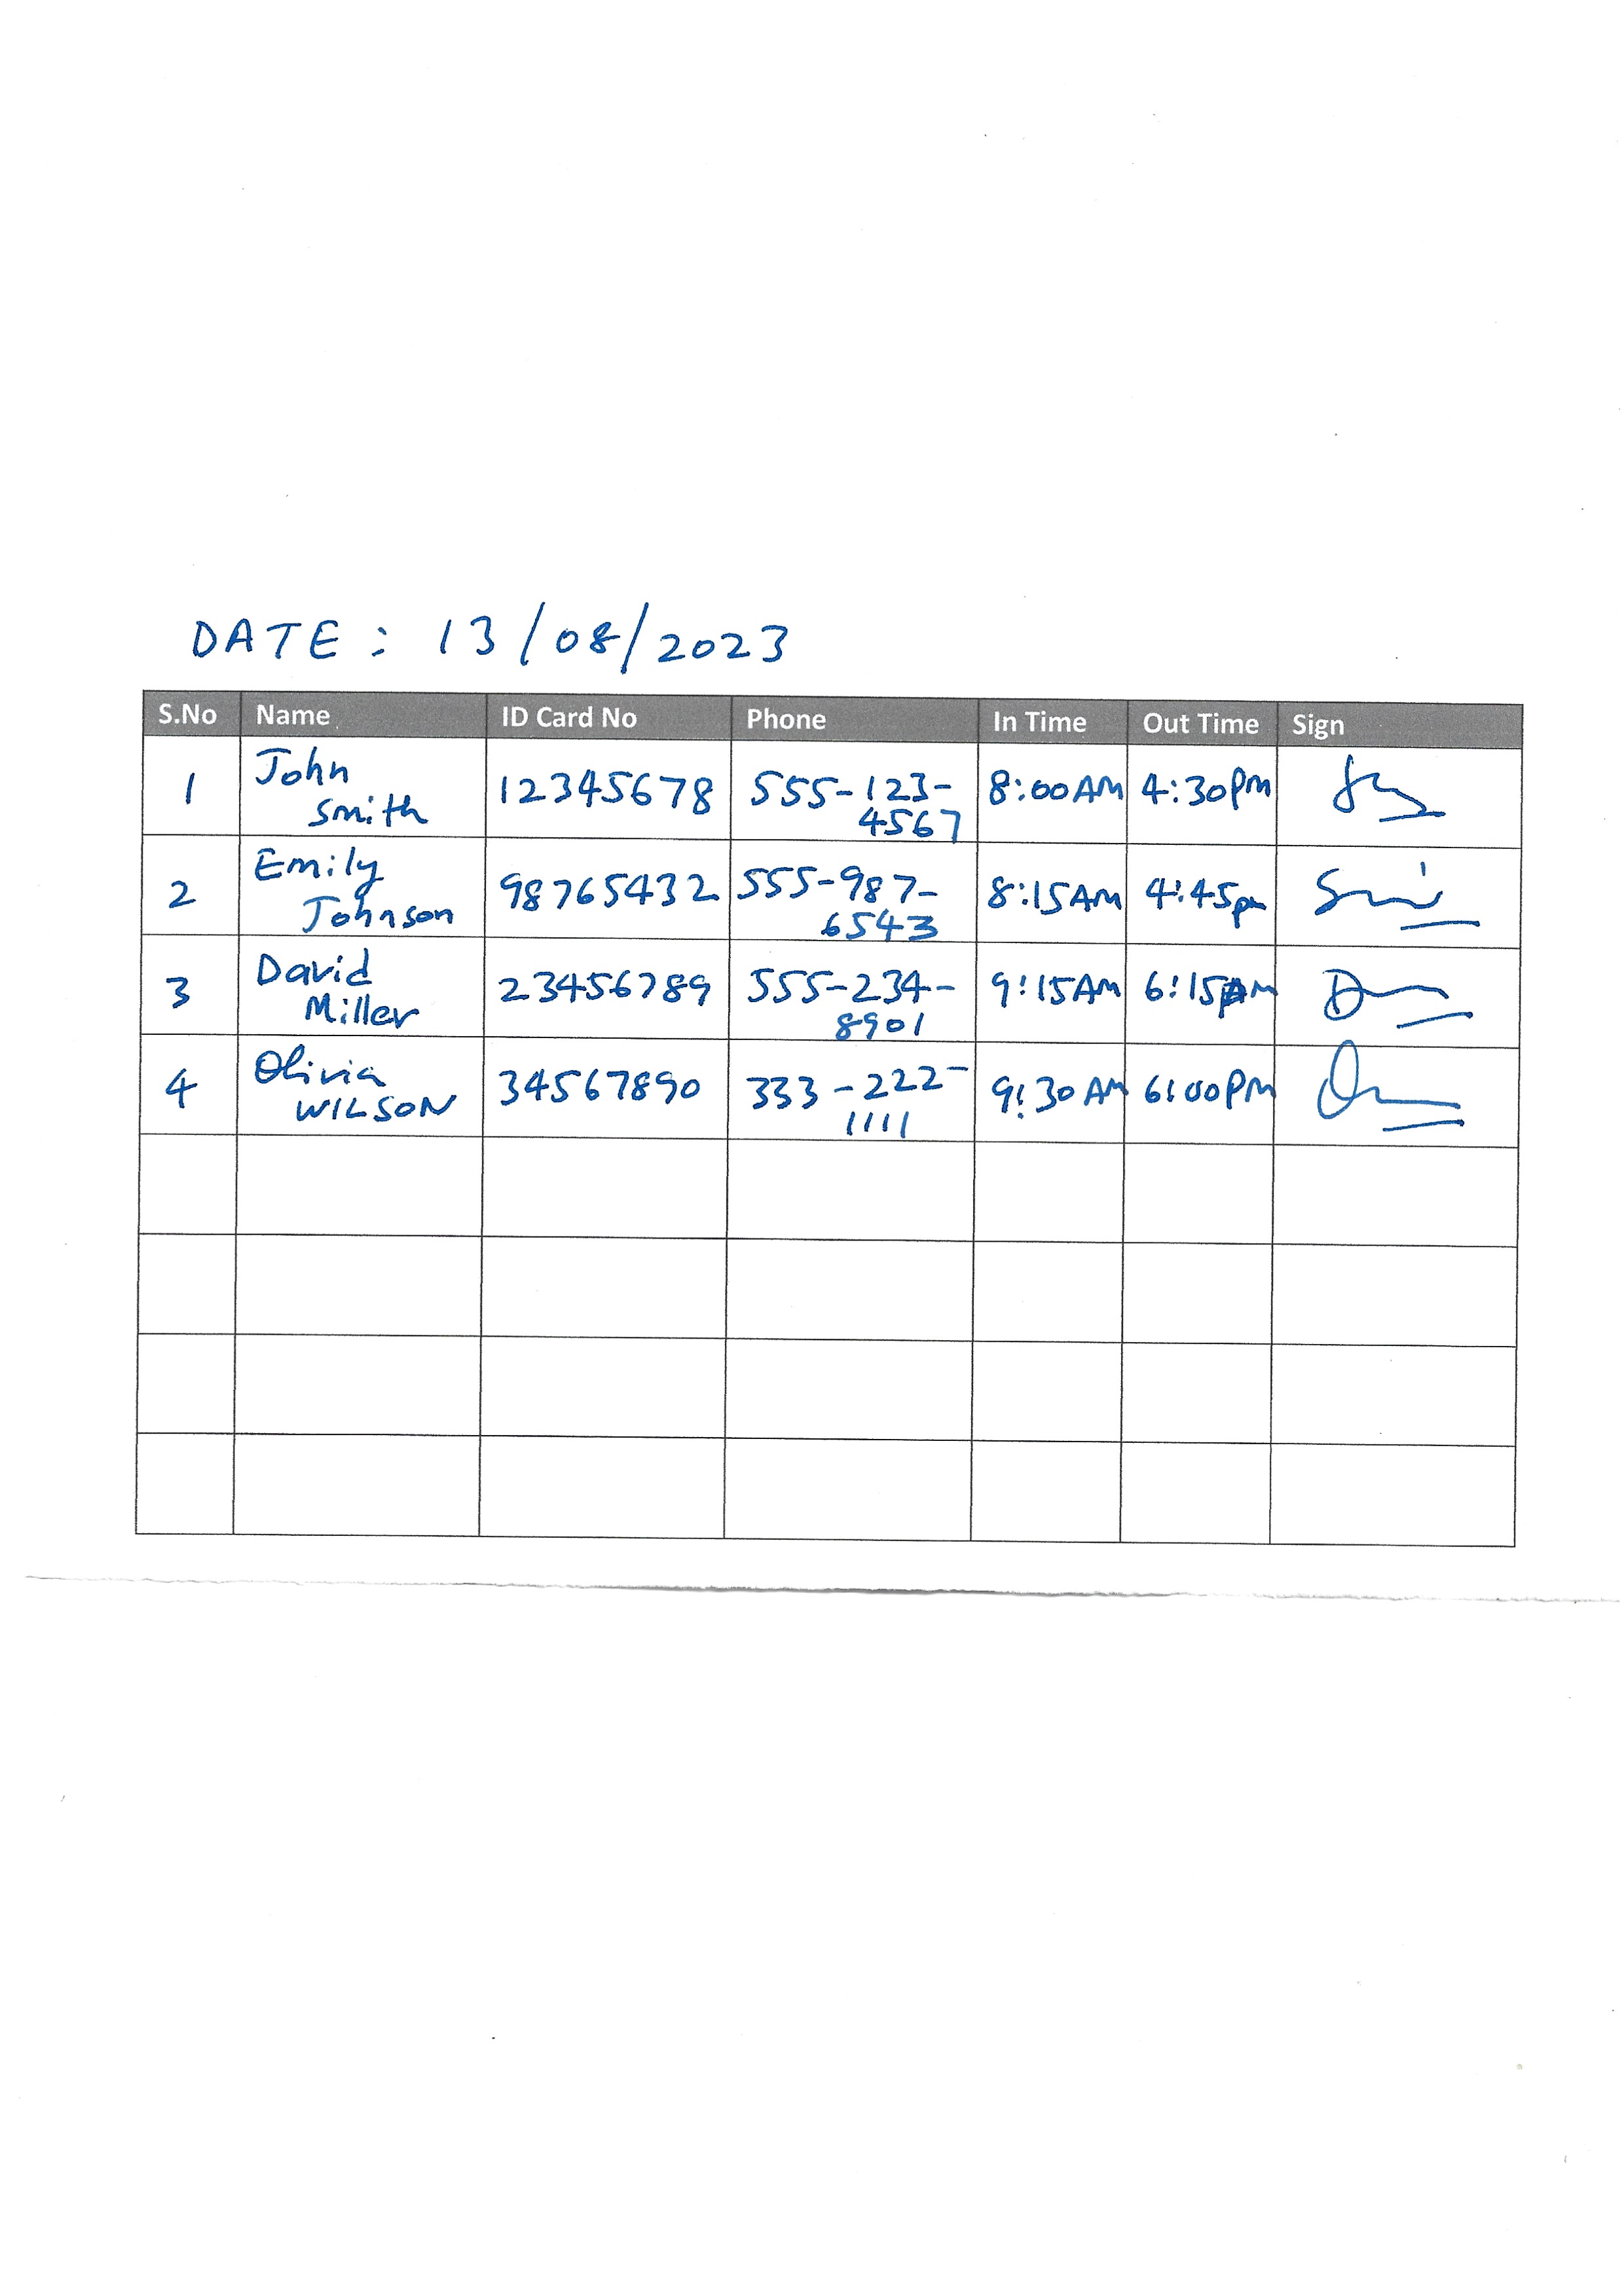 DATE : 13/08/2023
S.No Name ID Card No Phone In Time Out Time Sign
1 John Smith 12345678 555-123-4567 8:00AM 4:30PM
2 Emily Johnson 98765432 555-987-6543 8:15AM 4:45pm
3 David Miller 23456789 555-234-8901 9:15AM 6:15PM
4 Olivia WILSON 34567890 333-222-1111 9:30 AM 6:00PM